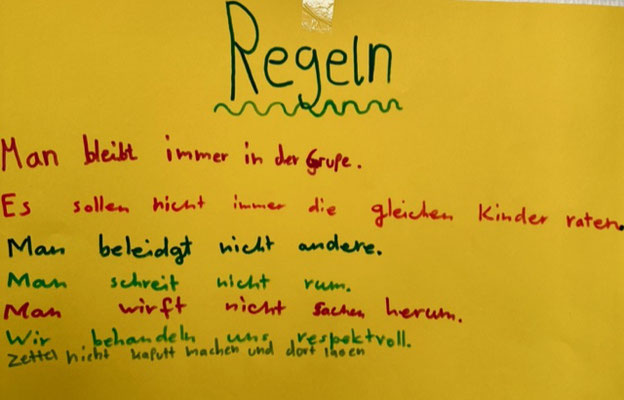 Regeln
Man bleibt immer in der Grupe.
Es sollen nicht immer die gleichen Kinder raten.
Man beleidgt nicht andere.
Man schreit nicht rum.
Man wirft nicht Sachen herum.
Wir behandeln uns respektvoll.
Zettel nicht kaputt machen und dort